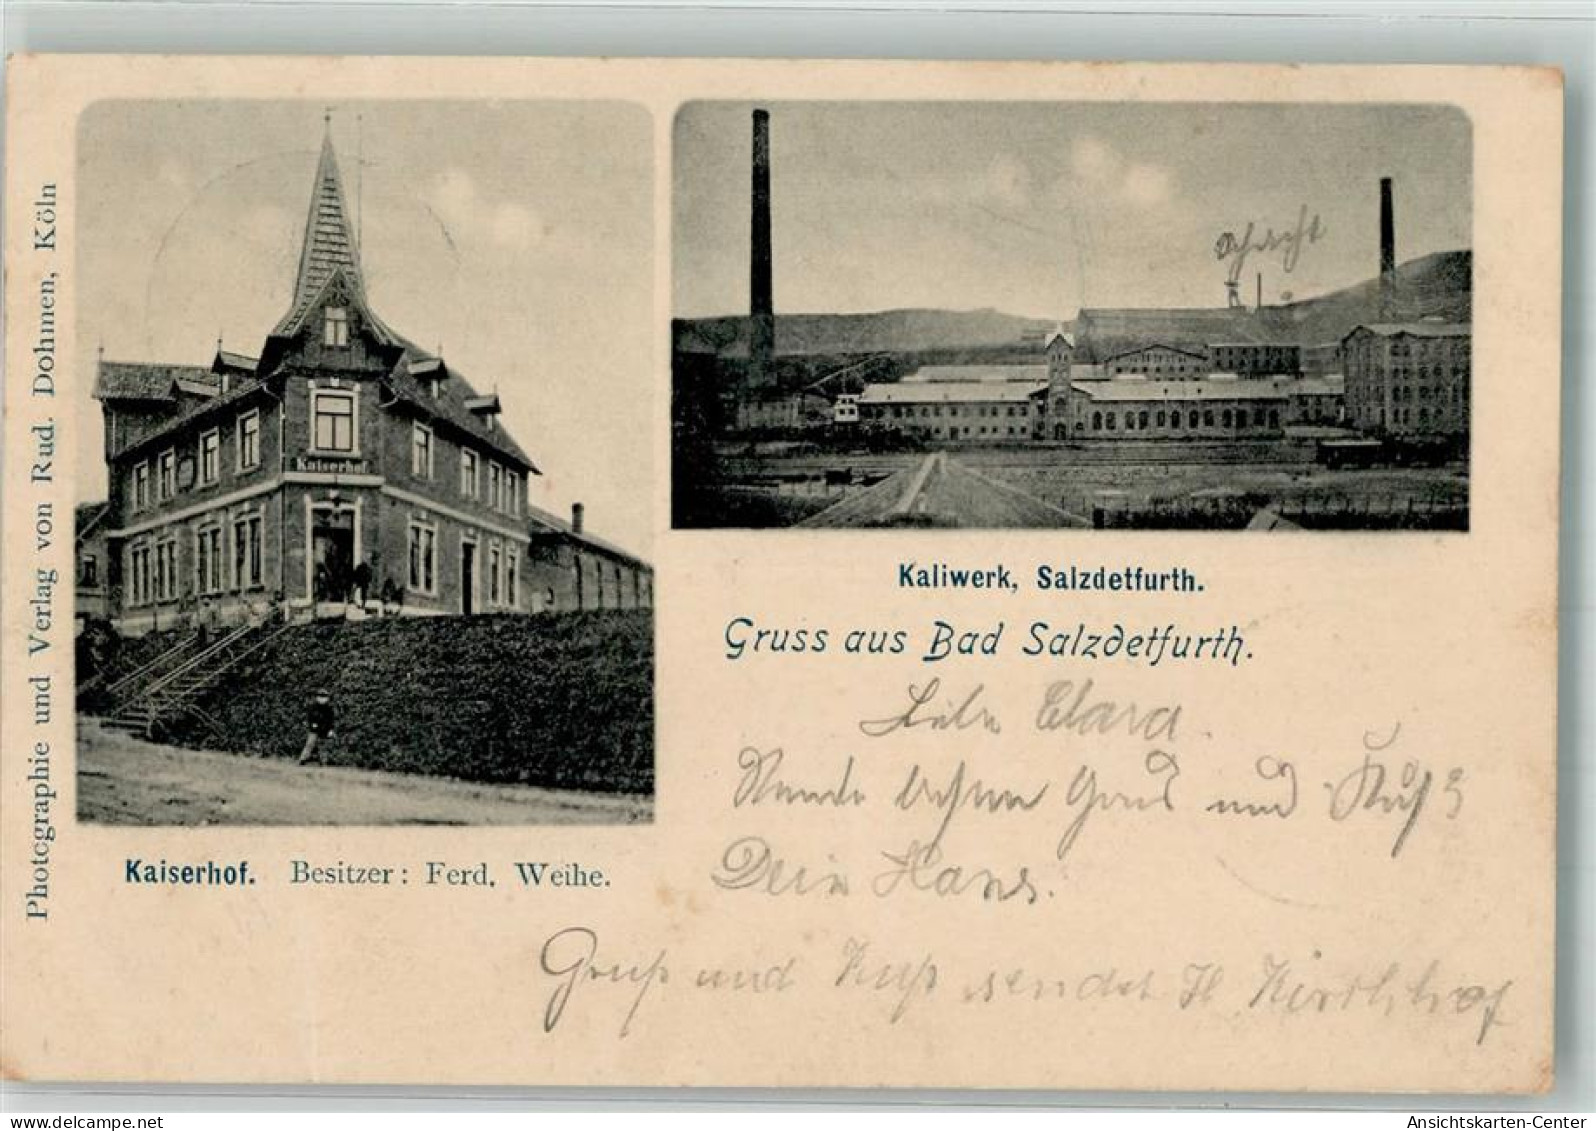 Photographie und Verlag von Rud. Dohmen, Köln
Kaiserhof
Schacht
Kaliwerk, Salzdetfurth.
Gruss aus Bad Salzdetfurth.
Liebe Clara.
Sende besten Gruß und Kuß
Dein Hans.
Kaiserhof. Besitzer: Ferd. Weihe.
Gruß und Kuß sendet H Kirchhof
Ansichtskarten-Center
https://www.ansichtskarten-center.de